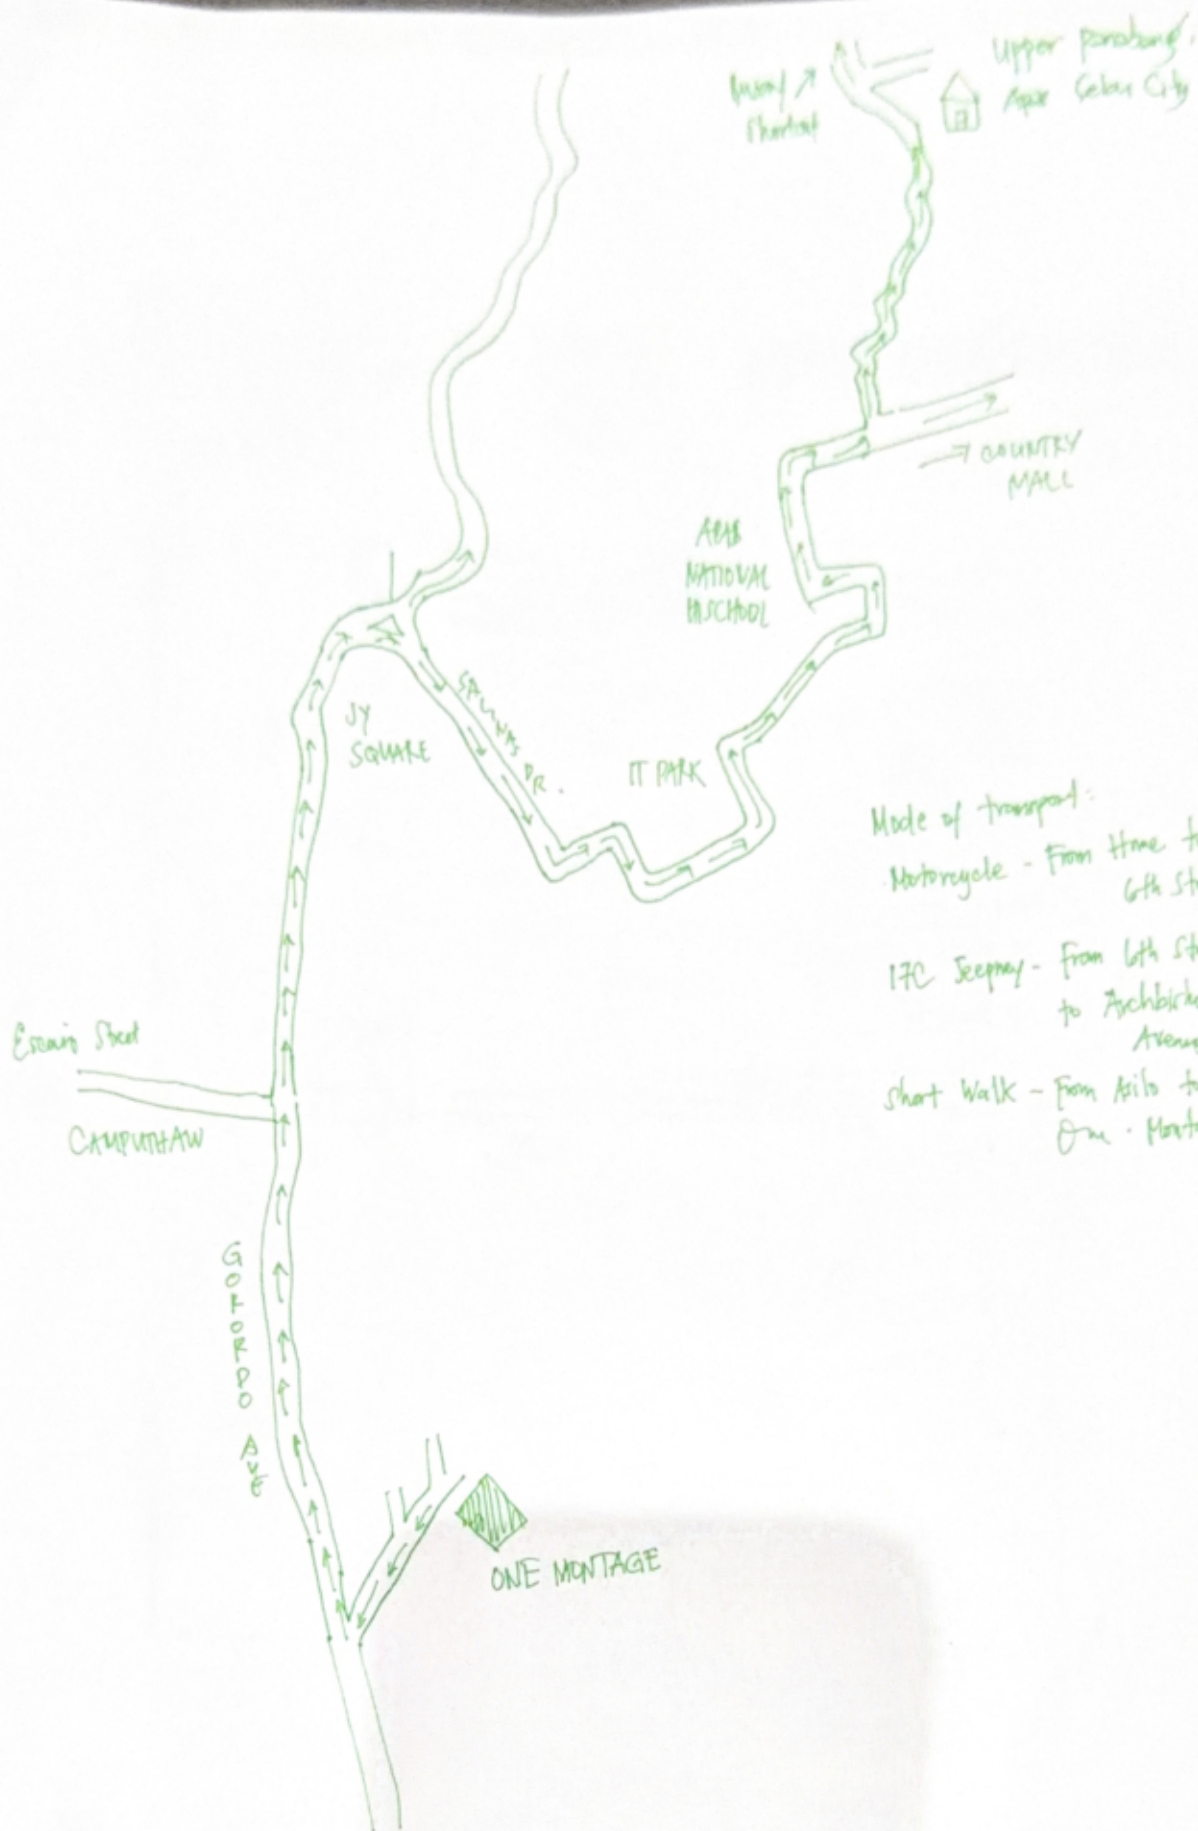 Upper
Apas Cebu City
Shortcut
COUNTRY
MALL
APAS
NATIONAL
HISCHOOL
SALINAS DR.
JY
SQUARE
IT PARK
Mode of transport:
Motorcycle - From Home to
6th St
17C Jeepney - From 6th St
to Archbish
Avenu
Short Walk - From Asilo to
One - Monta
Escario Street
CAMPUTHAW
GORORDO AVE
ONE MONTAGE